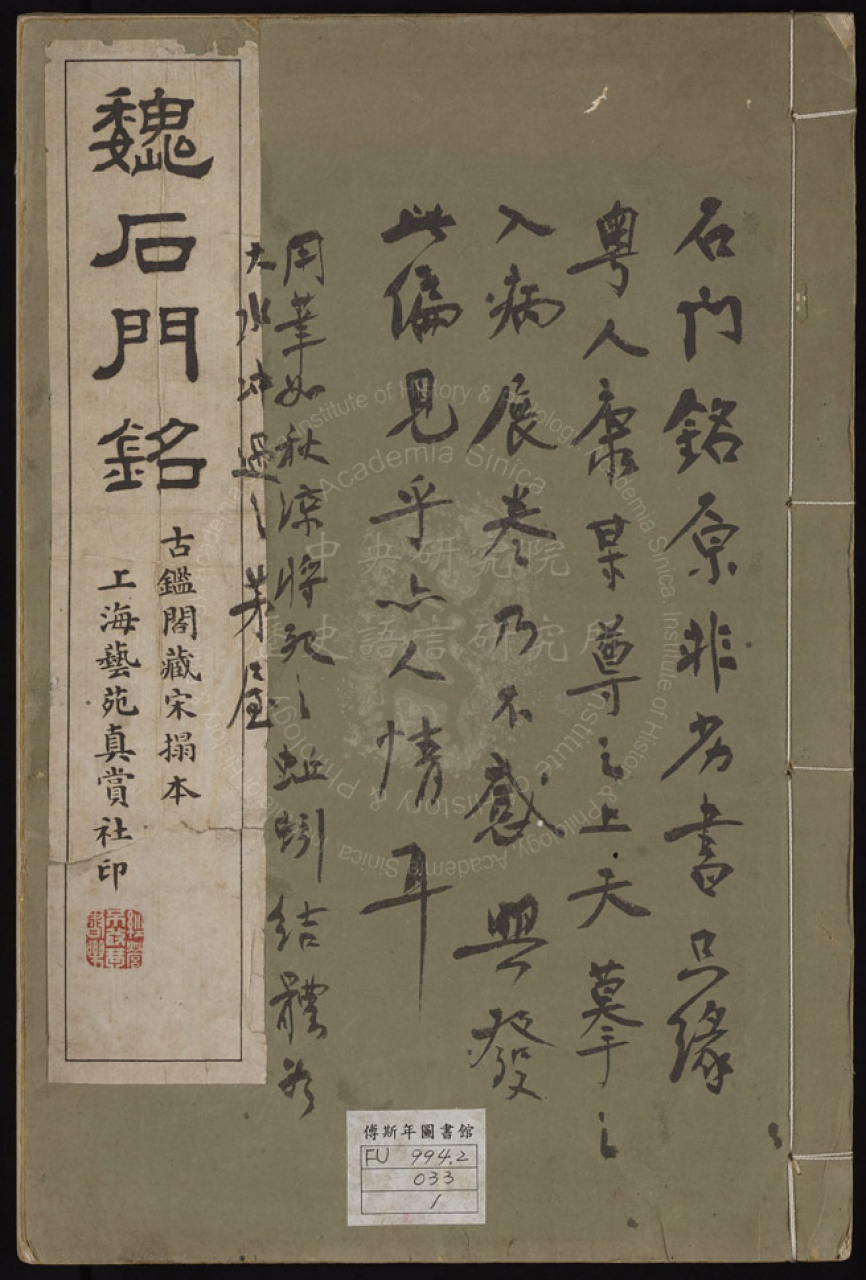 石門銘原非劣書只緣
粵人康某尊之上天摹之
入病展卷乃不感興發
此偏見乎亦人情耳
用筆如秋涼將死之蚯蚓結體為
大水沖過之茅屋
魏石門銘
古鑑閣藏宋搨本
上海藝苑真賞社印
傅斯年圖書館
FU 994.2
033
1
中央研究院
歷史語言研究所
Institute of History & Philology, Academia Sinica